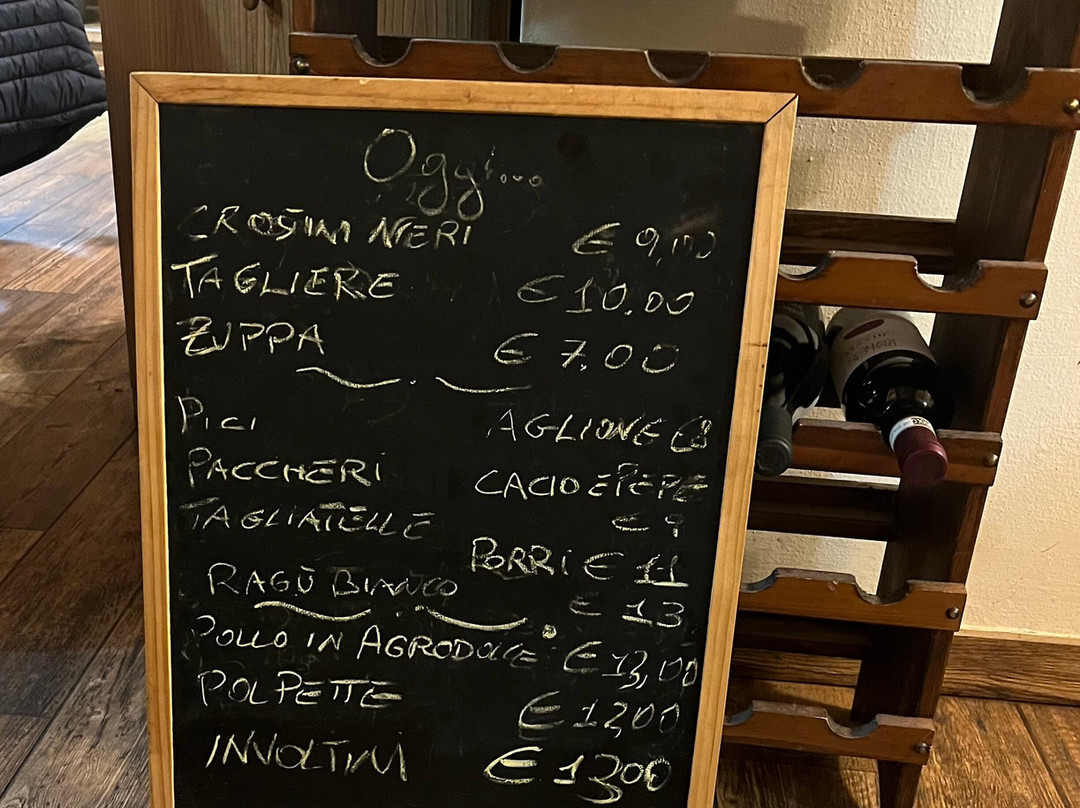 Oggi...
CROSTINI NERI € 9,00
TAGLIERE € 10.00
ZUPPA € 7.00
PICI AGLIONE €8
PACCHERI CACIO E PEPE
€ 9
TAGLIATELLE PORRI € 11
RAGÙ BIANCO € 13
POLLO IN AGRODOLCE € 13,00
POLPETTE € 12,00
INVOLTINI € 13,00